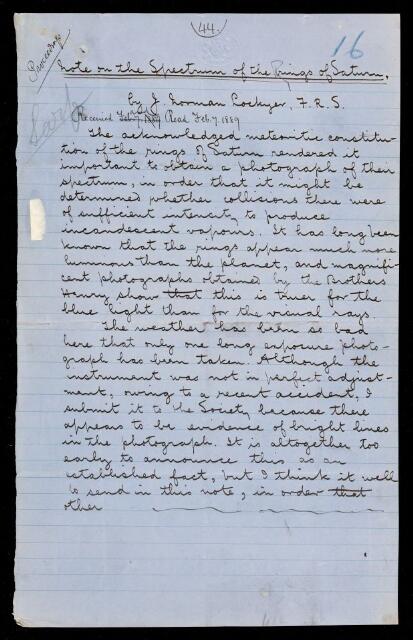 44.
16
Proceedings
Note on the Spectrum of the Rings of Saturn.
by J. Norman Lockyer, F.R.S.
Received Feb. 7, 1889 Read Feb. 7. 1889
The acknowledged meteoritic constitu-
tion of the rings of Saturn rendered it
important to obtain a photograph of their
spectrum, in order that it might be
determined whether collisions there were
of sufficient intensity to produce
incandescent vapours. It has long been
known that the rings appear much more
luminous than the planet, and magnifi-
cent photographs obtained by the Brothers
Henry show that this is truer for the
blue light than for the visual rays.
The weather has been so bad
here that only one long exposure photo-
graph has been taken. Although the
instrument was not in perfect adjust-
ment, owing to a recent accident, I
submit it to the Society because there
appears to be evidence of bright lines
in the photograph. It is altogether too
early to announce this as an
established fact, but I think it well
to send in this note, in order that
other